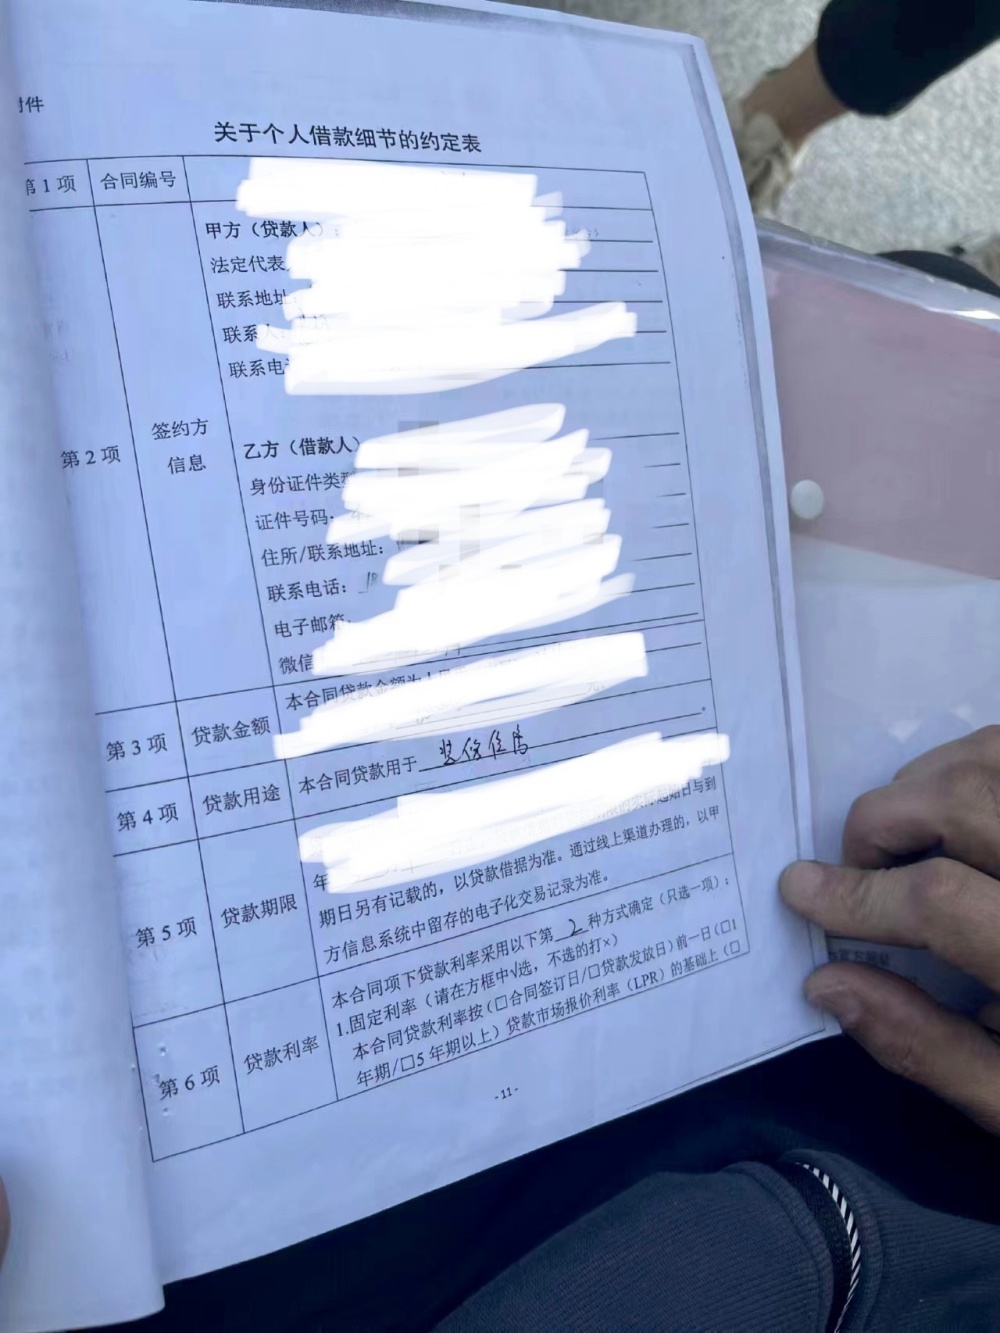 附件
关于个人借款细节的约定表
第1项 合同编号
甲方（贷款人）
法定代表
联系地址
联系人
联系电
第2项 签约方信息
乙方（借款人）
身份证件类
证件号码
住所/联系地址：
联系电话：
电子邮箱
微信
第3项 贷款金额
本合同贷款金额为人民
第4项 贷款用途
本合同贷款用于 装修住房
第5项 贷款期限
实际起始日与到
期日另有记载的，以贷款借据为准。通过线上渠道办理的，以甲
方信息系统中留存的电子化交易记录为准。
第6项 贷款利率
本合同项下贷款利率采用以下第 2 种方式确定（只选一项）：
1.固定利率（请在方框中√选，不选的打×）
本合同贷款利率按（□合同签订日/□贷款发放日）前一日（□1
年期/□5年期以上）贷款市场报价利率（LPR）的基础上（□
-11-